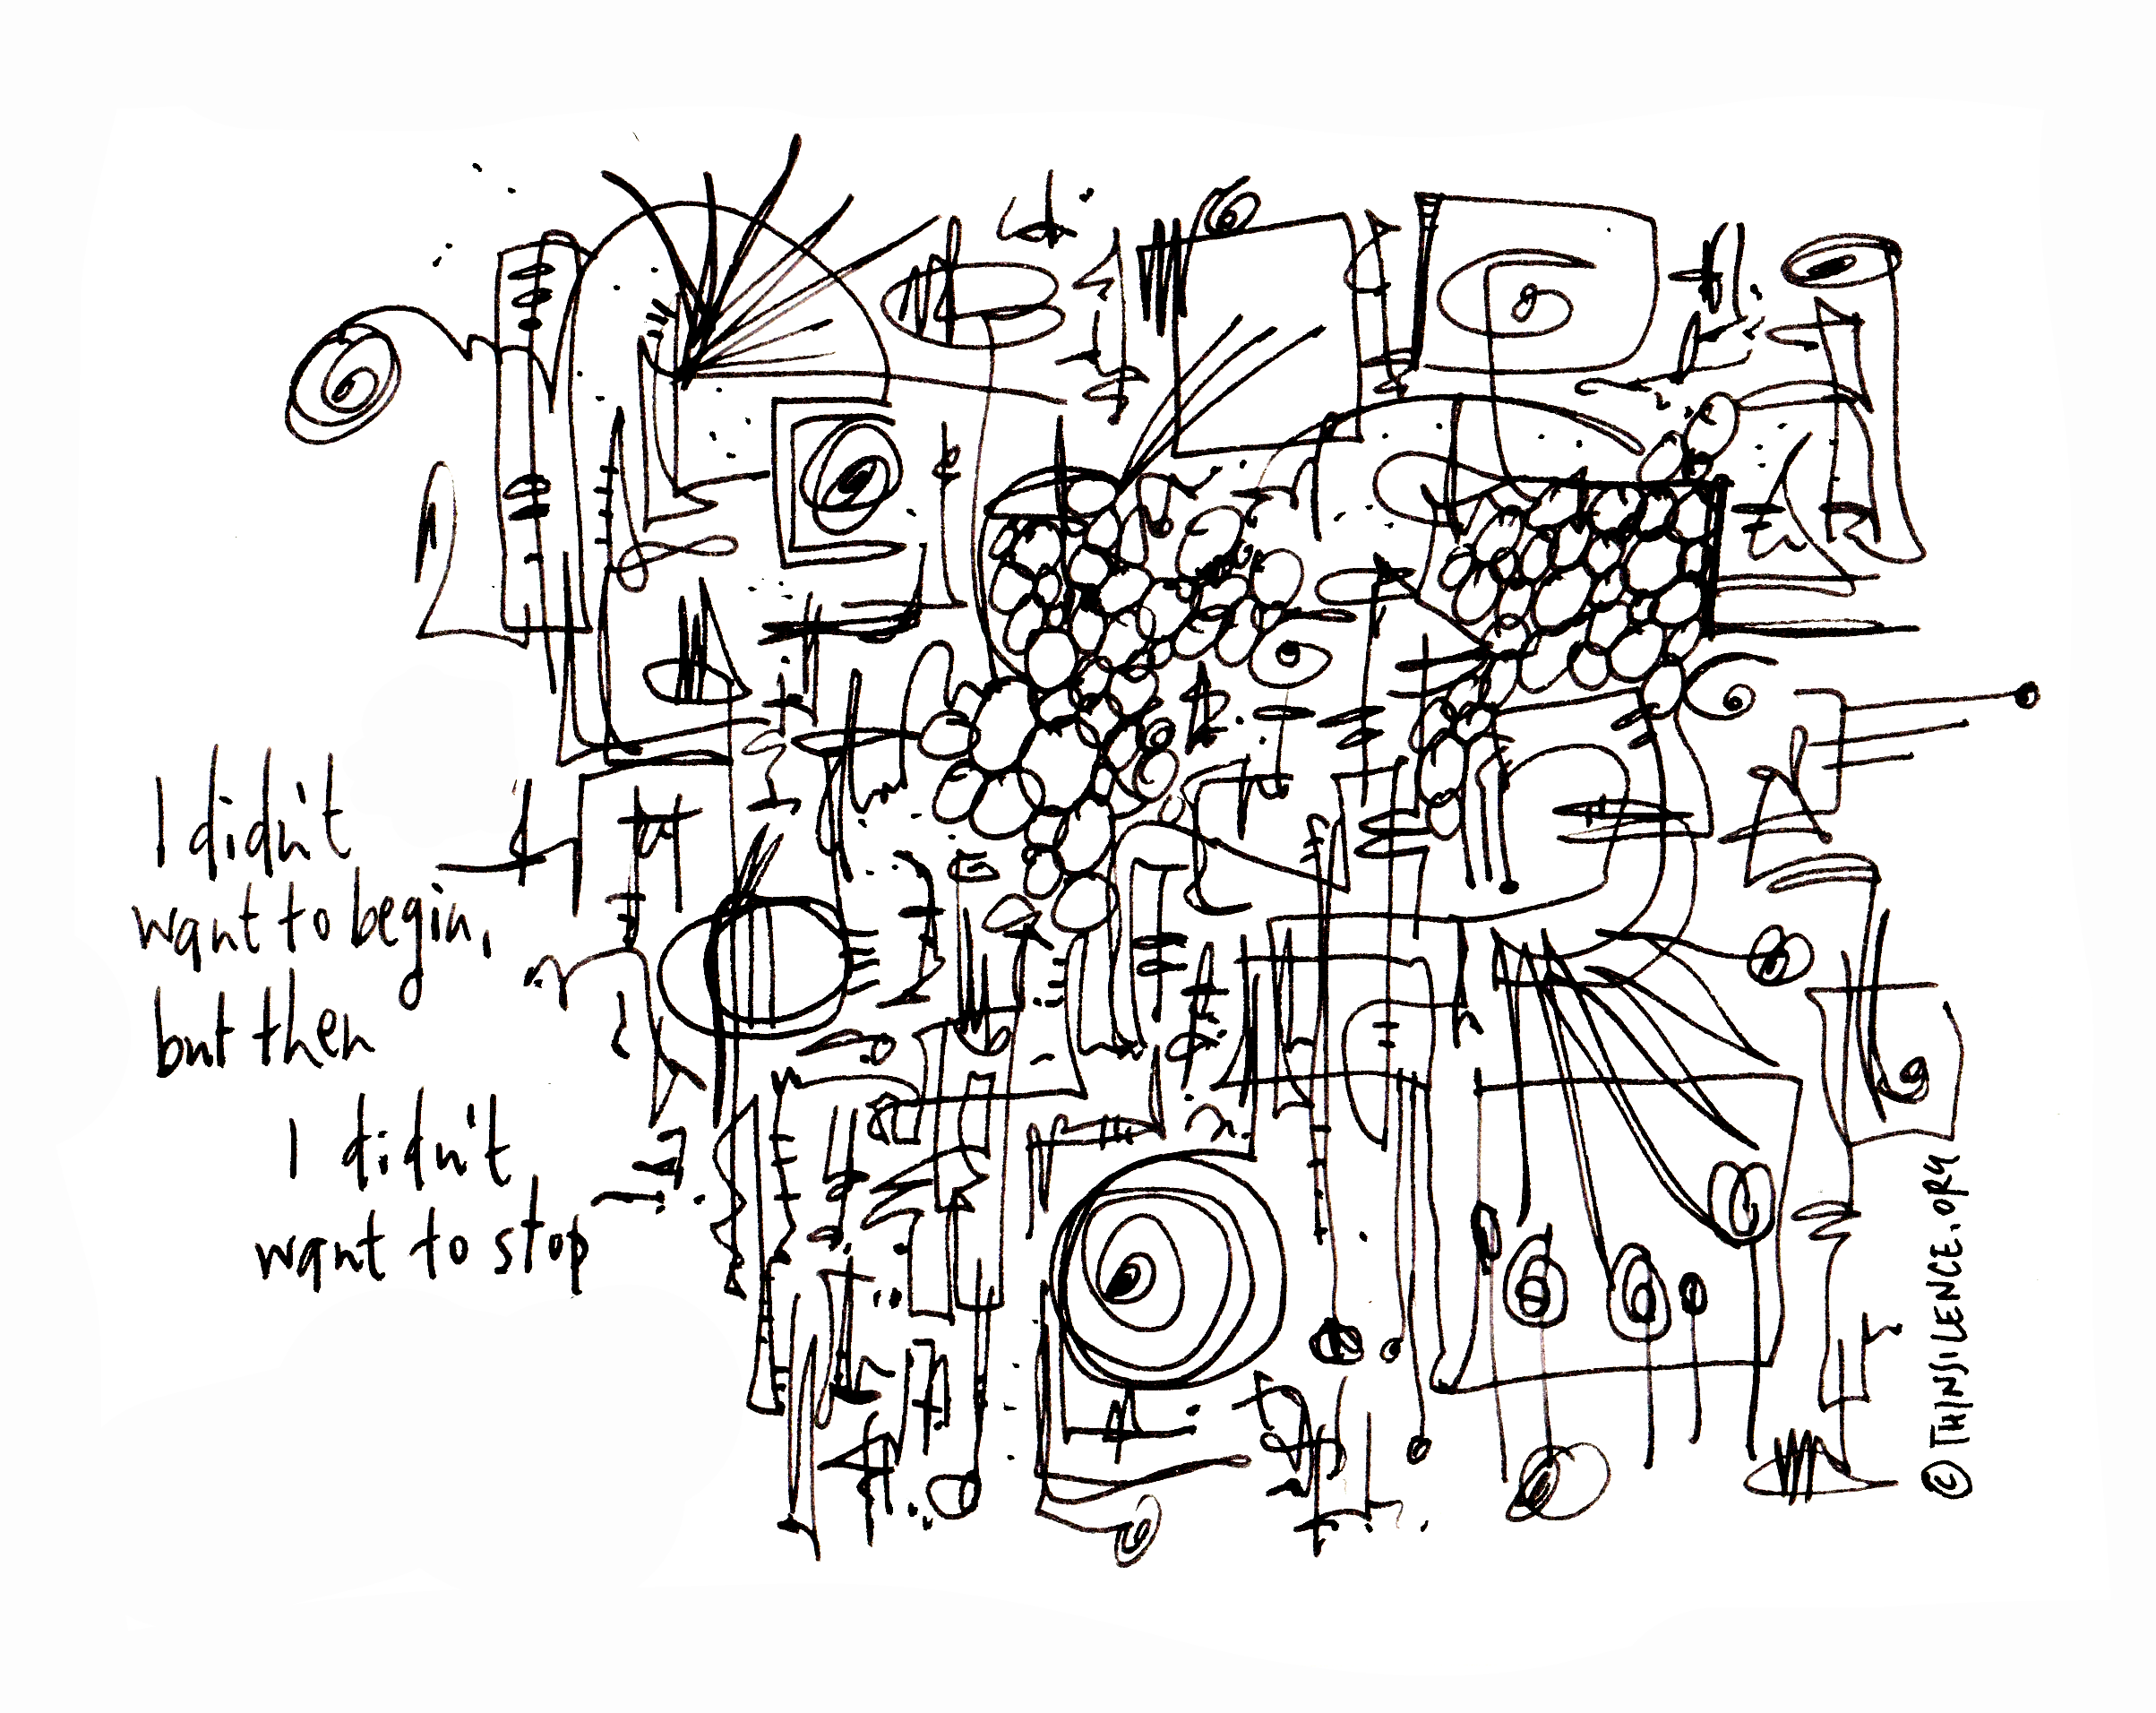 I didn't
want to begin,
but then
I didn't
want to stop
© THINSILENCE.ORG